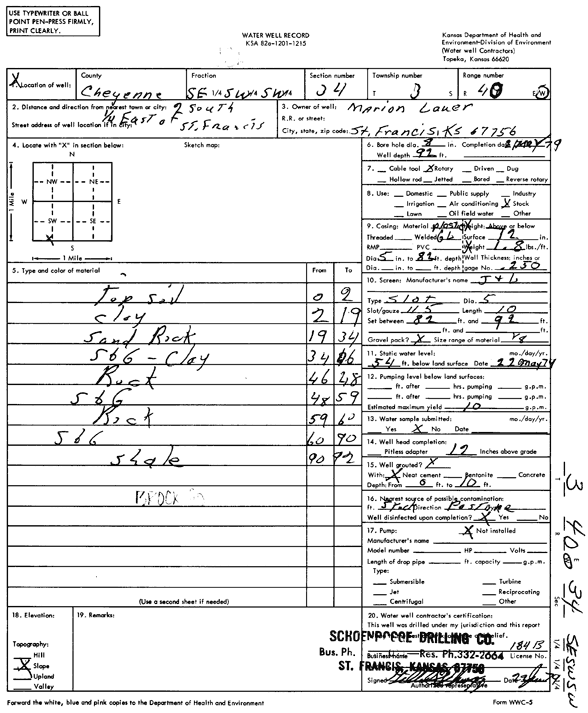 USE TYPEWRITER OR BALL
POINT PEN-PRESS FIRMLY,
PRINT CLEARLY.
WATER WELL RECORD
KSA 82a-1201-1215
Kansas Department of Health and
Environment-Division of Environment
(Water well Contractors)
Topeka, Kansas 66620
Location of well: County Fraction Section number Township number Range number
Cheyenne SE 1/4 SW 1/4 SW 1/4 34 T 3 S R 40 E/W
2. Distance and direction from nearest town or city: 2 South
Street address of well location if in city: 1/4 East of St. Francis
3. Owner of well: Marion Lauer
R.R. or street:
City, state, zip code: St. Francis, Ks 67756
4. Locate with "X" in section below: Sketch map:
N
NW NE
W E
SW SE
S
1 Mile
1 Mile
6. Bore hole dia. 8 in. Completion date
Well depth 92 ft.
7. Cable tool X Rotary Driven Dug
Hollow rod Jetted Bored Reverse rotary
8. Use: Domestic Public supply Industry
Irrigation Air conditioning X Stock
Lawn Oil field water Other
9. Casing: Material plastic Height: Above or below
Threaded Welded GL Surface 12 in.
RMP PVC Weight 1.8 lbs./ft.
Dia. 5 in. to 82 ft. depth Wall Thickness: inches or
Dia. in. to ft. depth gage No. .250
5. Type and color of material From To
Top soil 0 2
Clay 2 19
Sand Rock 19 34
S&G - Clay 34 46
Rock 46 48
S&G 48 59
Rock 59 60
S&G 60 90
Shale 90 92
(Use a second sheet if needed)
10. Screen: Manufacturer's name J + L
Type Slot Dia. 5
Slot/gauze 115 Length 10
Set between 82 ft. and 92 ft.
ft. and ft.
Gravel pack? X Size range of material
11. Static water level: mo./day/yr.
54 ft. below land surface Date 22 May 79
12. Pumping level below land surfaces:
ft. after hrs. pumping g.p.m.
ft. after hrs. pumping g.p.m.
Estimated maximum yield 10 g.p.m.
13. Water sample submitted: mo./day/yr.
Yes X No Date
14. Well head completion:
Pitless adapter 12 Inches above grade
15. Well grouted? X
With: X Neat cement Bentonite Concrete
Depth: From 0 ft. to 10 ft.
16. Nearest source of possible contamination:
ft. Stock Direction Pasture
Well disinfected upon completion? X Yes No
17. Pump: X Not installed
Manufacturer's name
Model number HP Volts
Length of drop pipe ft. capacity g.p.m.
Type:
Submersible Turbine
Jet Reciprocating
Centrifugal Other
18. Elevation:
19. Remarks:
Topography:
Hill
X Slope
Upland
Valley
20. Water well contractor's certification:
This well was drilled under my jurisdiction and this report
DRILLING CO.
184B
Bus. Ph. Business name Res. Ph. 332-2664 License No.
ST. FRANCIS, KANSAS 67756
Signed Date
Authorized representative
Forward the white, blue and pink copies to the Department of Health and Environment
Form WWC-5
T 3
R 40
Sec 34
1/4 1/4 1/4 SE SW SW